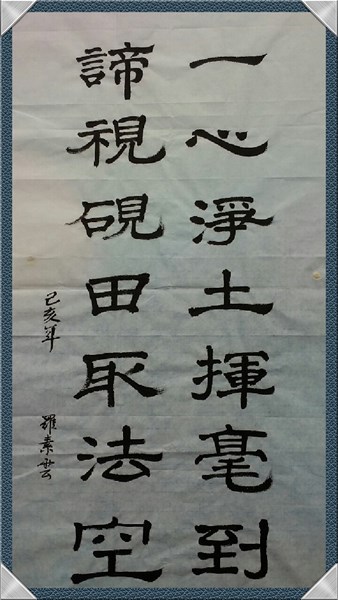 一心淨土揮毫到
諦視硯田取法空
己亥年 羅素雲